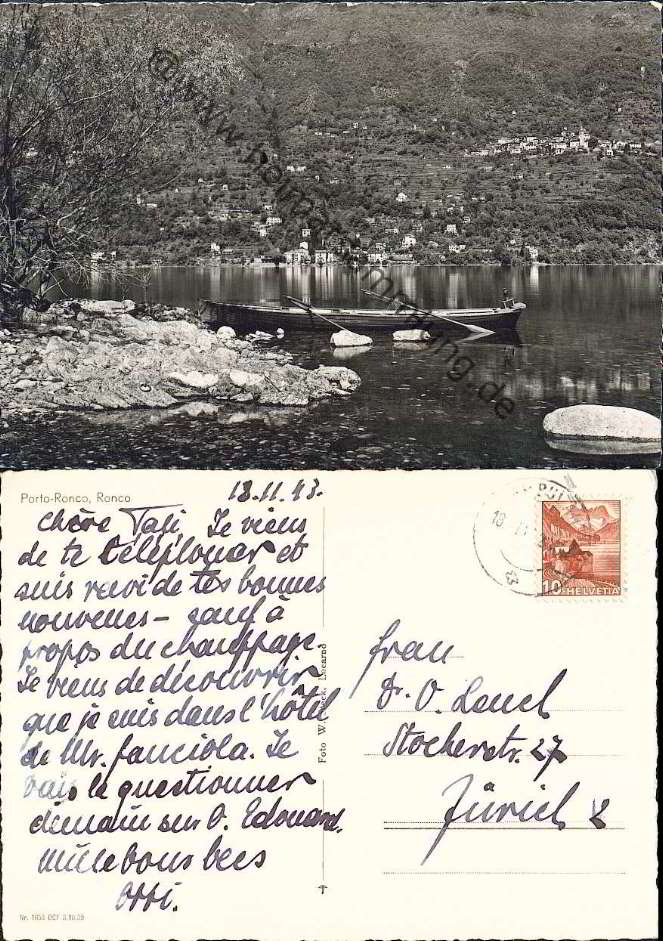 www.      nung.de
Porto-Ronco, Ronco
18.11.43.
Chère Tasi, Je viens
de te téléphoner et
suis ravi de tes bonnes
nouvelles – sauf à
propos du chauffage.
Je viens de découvrir
que je suis dans l'hôtel
de Mr. Fanciola. Je
vais le questionner
demain sur O. Edouard.
Mille bons becs
Foto W.    , Locarno
10 HELVETIA
Frau
Dr. O. Leuch
Stockerstr. 27
Zürich 2